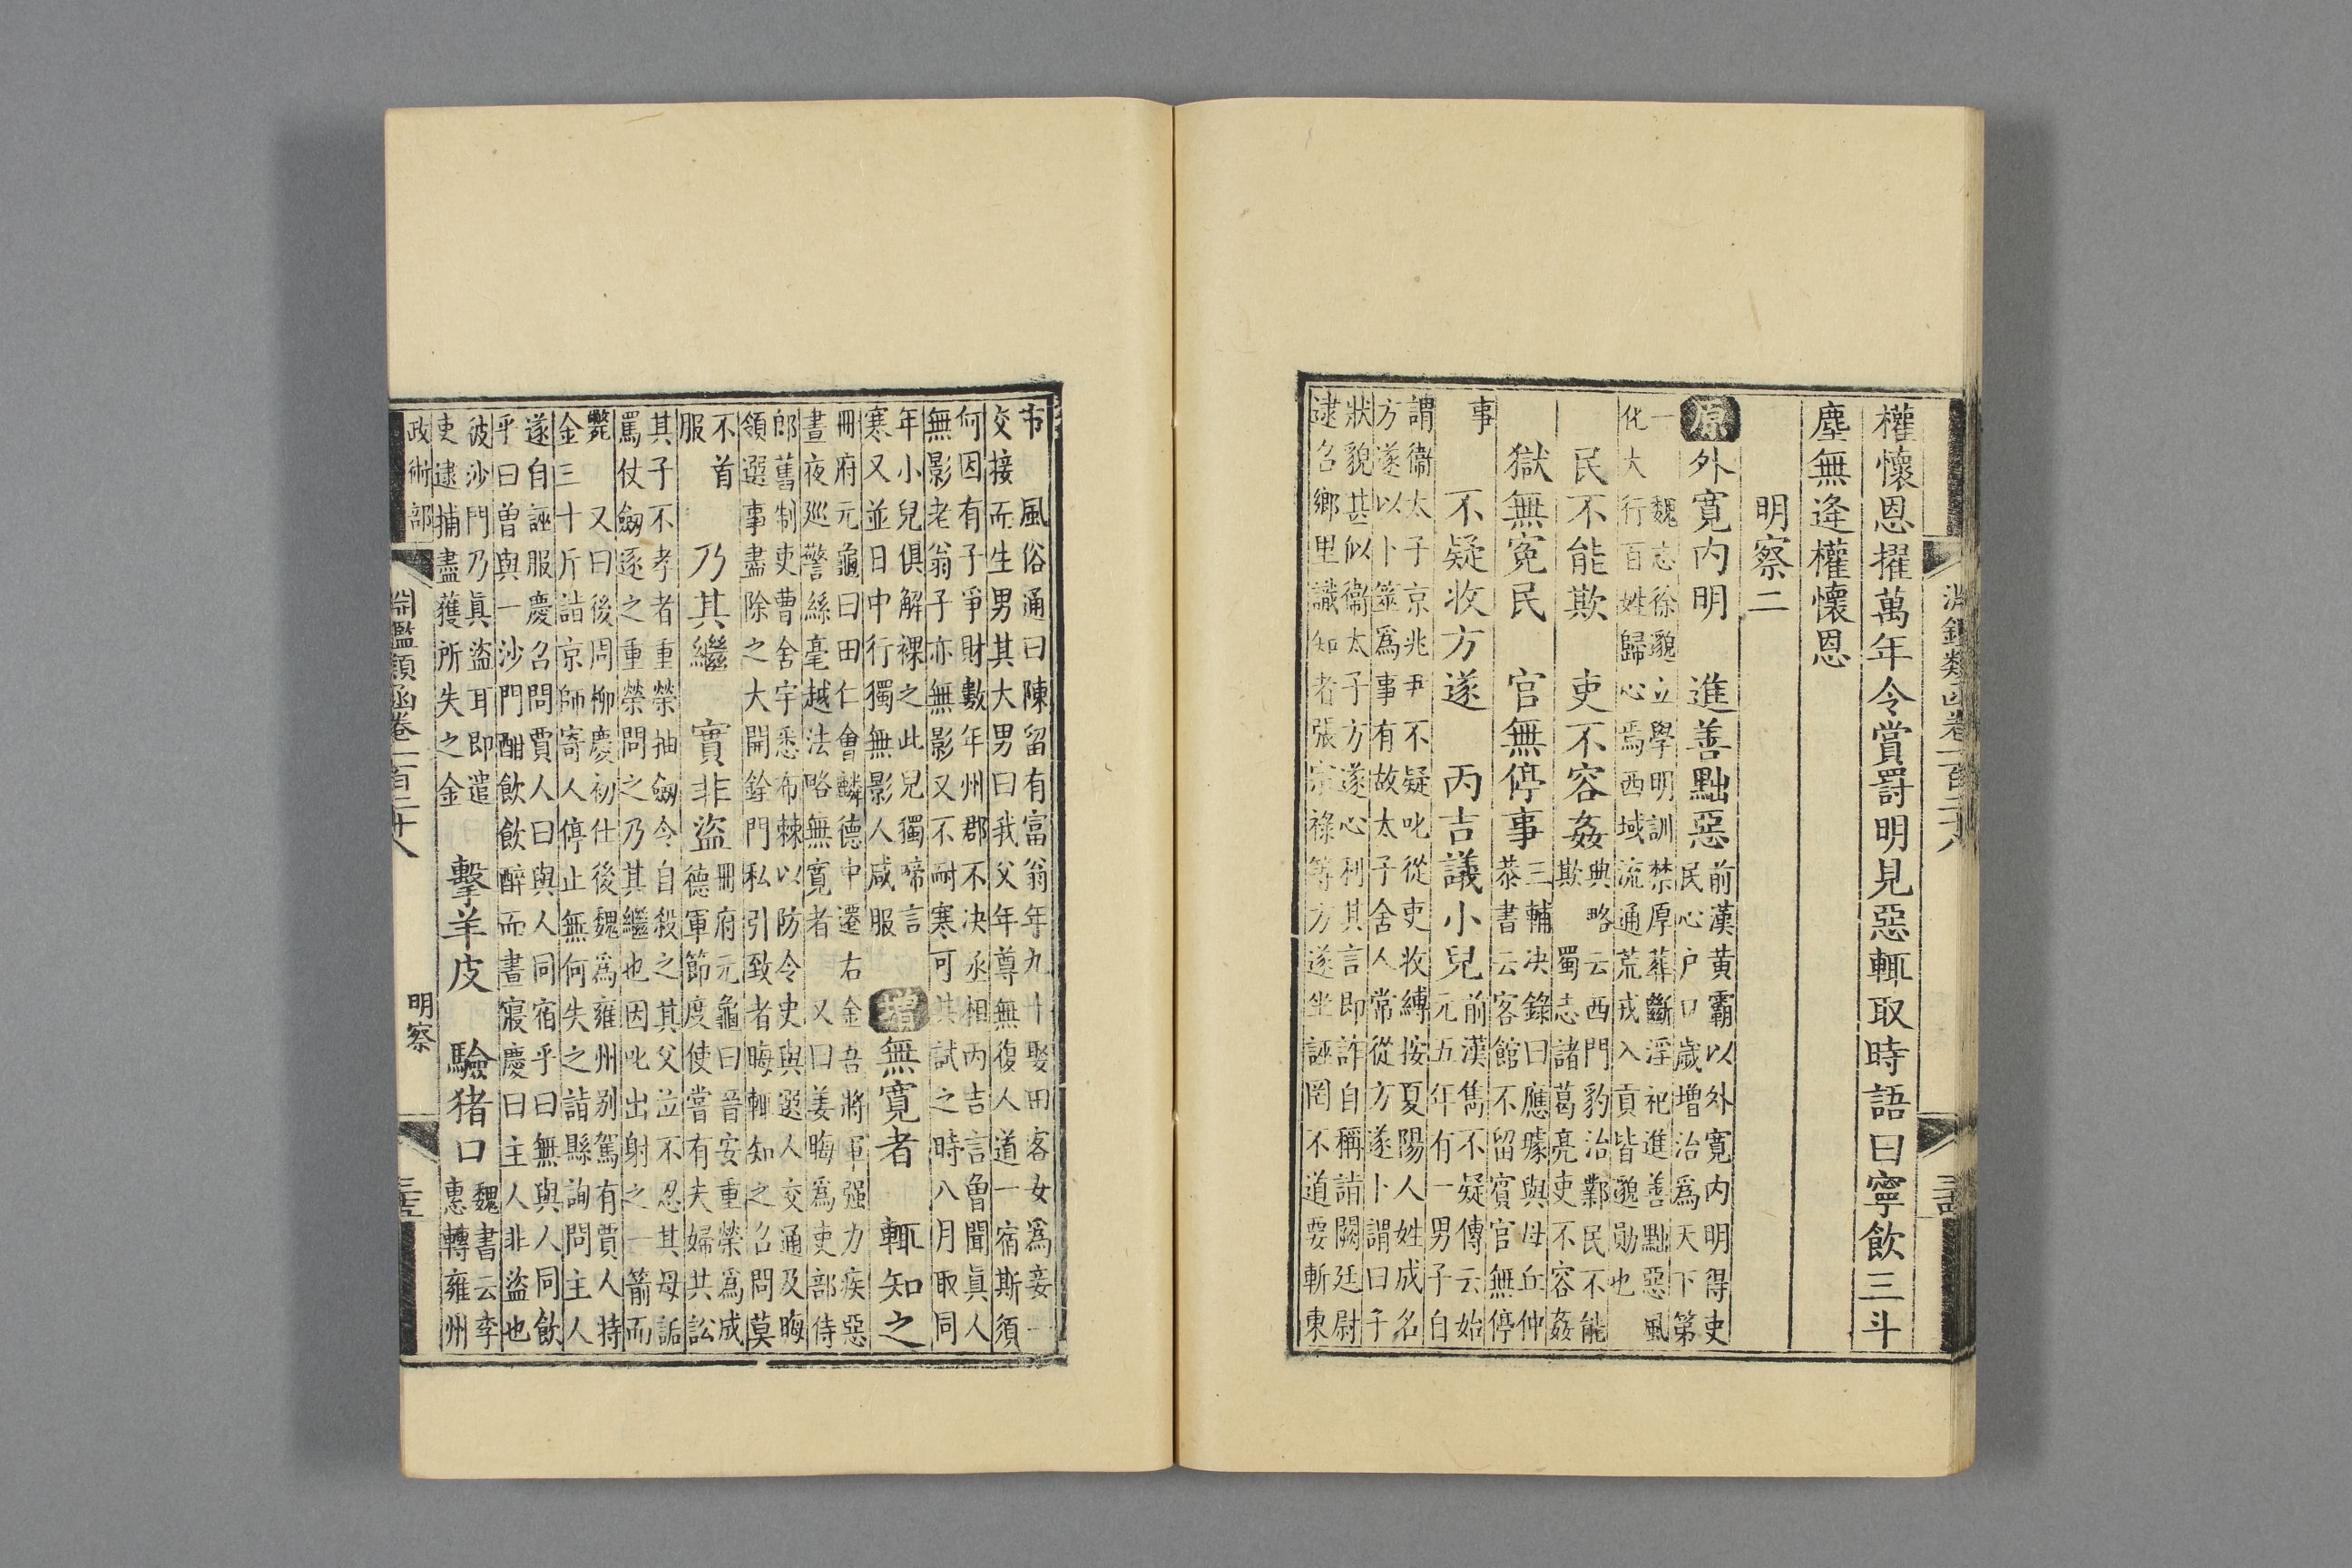 淵鑑類函卷一百二十八
權懷恩擢萬年令賞罰明見惡輒取時語曰寧飲三斗
塵無逢權懷恩
明察二
原外寬內明 進善黜惡前漢黃霸以外寬內明得吏
民心戶口歲增治爲天下第
一 魏志徐邈立學明訓禁厚葬斷淫祀進善黜惡風
化大行百姓歸心焉西域流通荒戎入貢皆邈勛也
民不能欺 吏不容姦典略云西門豹治鄴民不能
欺 蜀志諸葛亮吏不容姦
獄無寃民 官無停事三輔決錄曰應璩與母丘仲
恭書云客館不留賓官無停
事
不疑收方遂 丙吉議小兒前漢雋不疑傳云始
元五年有一男子自
謂衞太子京兆尹不疑叱從吏收縛按夏陽人姓成名
方遂以卜筮爲事有故太子舍人常從方遂卜謂曰子
狀貌甚似衞太子方遂心利其言即詐自稱詣闕廷尉
逮召鄉里識知者張宗祿等方遂坐誣罔不道要斬東
市 風俗通曰陳留有富翁年九十娶田客女爲妾一
交接而生男其大男曰我父年尊無復人道一宿斯須
何因有子爭財數年州郡不決丞相丙吉言曾聞眞人
無影老翁子亦無影又不耐寒可共試之時八月取同
年小兒俱解裸之此兒獨啼言
寒又並日中行獨無影人咸服
增無寬者 輒知之
冊府元龜曰田仁會麟德中遷右金吾將軍强力疾惡
晝夜巡警絲毫越法略無寬者 又曰姜晦爲吏部侍
郎舊制吏曹舍宇悉布棘以防令史與選人交通及晦
領選事盡除之大開銓門私引致者晦輒知之召問莫
不首
服
乃其繼 實非盜冊府元龜曰晉安重榮爲成
德軍節度使嘗有夫婦共訟
其子不孝者重榮抽劒令自殺之其父泣不忍其母詬
罵仗劒逐之重榮問之乃其繼也因叱出射之一箭而
斃 又曰後周柳慶初仕後魏爲雍州別駕有賈人持
金三十斤詣京師寄人停止無何失之詣縣詢問主人
遂自誣服慶召問賈人曰與人同宿乎曰無與人同飲
乎曰曾與一沙門酣飲飲醉而晝寢慶曰主人非盜也
彼沙門乃眞盜耳即遣
吏逮捕盡獲所失之金
擊羊皮 驗猪口魏書云李
惠轉雍州
政術部 淵鑑類函卷一百二十八 明察 三五